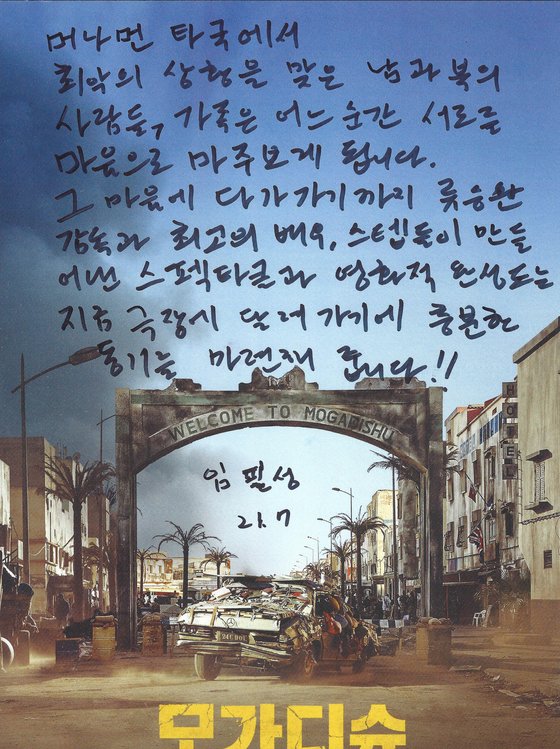 머나먼 타국에서
최악의 상황을 맞은 남과북의
사람들, 가족은 어느순간 서로를
마음으로 마주보게 됩니다.
그 마음에 다가가기까지 류승완
감독과 최고의 배우, 스텝들이 만들
어낸 스펙타클과 영화적 완성도는
지금 극장에 달려가기에 충분한
동기를 마련해 줍니다!!
WELCOME TO MOGADISHU
HOTEL
임필성
21.7
모가디슈